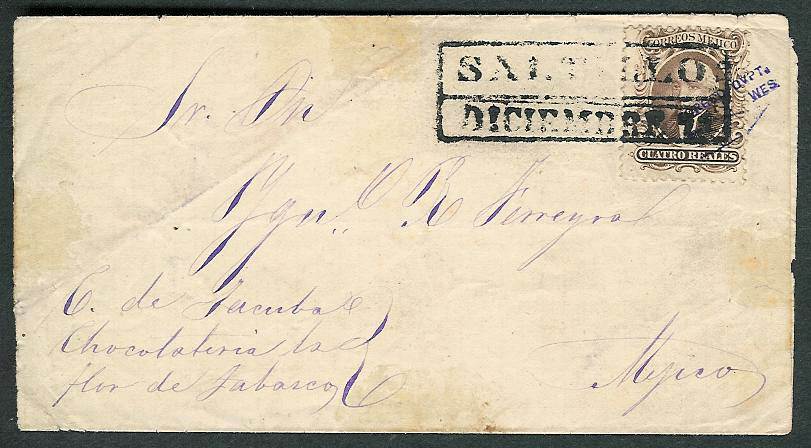 SALTILLO
DICIEMBRE
CORREOS MEJICO
CUATRO REALES
Sr. Dn
Ygn.º R Ferreyra
C. de Tacuba
Chocolateria la
flor de Tabasco
Mejico